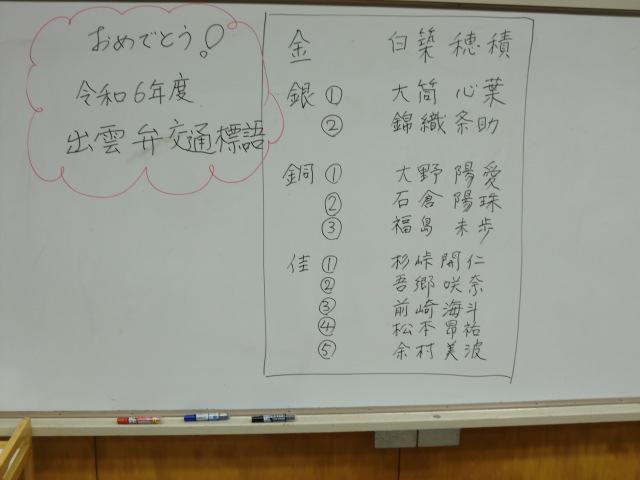 おめでとう!
令和6年度
出雲弁交通標語
金 白築穂積
銀 ① 大筒心葉
② 錦織条助
銅 ① 大野陽愛
② 石倉陽珠
③ 福島未歩
佳 ① 杉峠開仁
② 吾郷咲奈
③ 前崎海斗
④ 松本昂祐
⑤ 余村美波